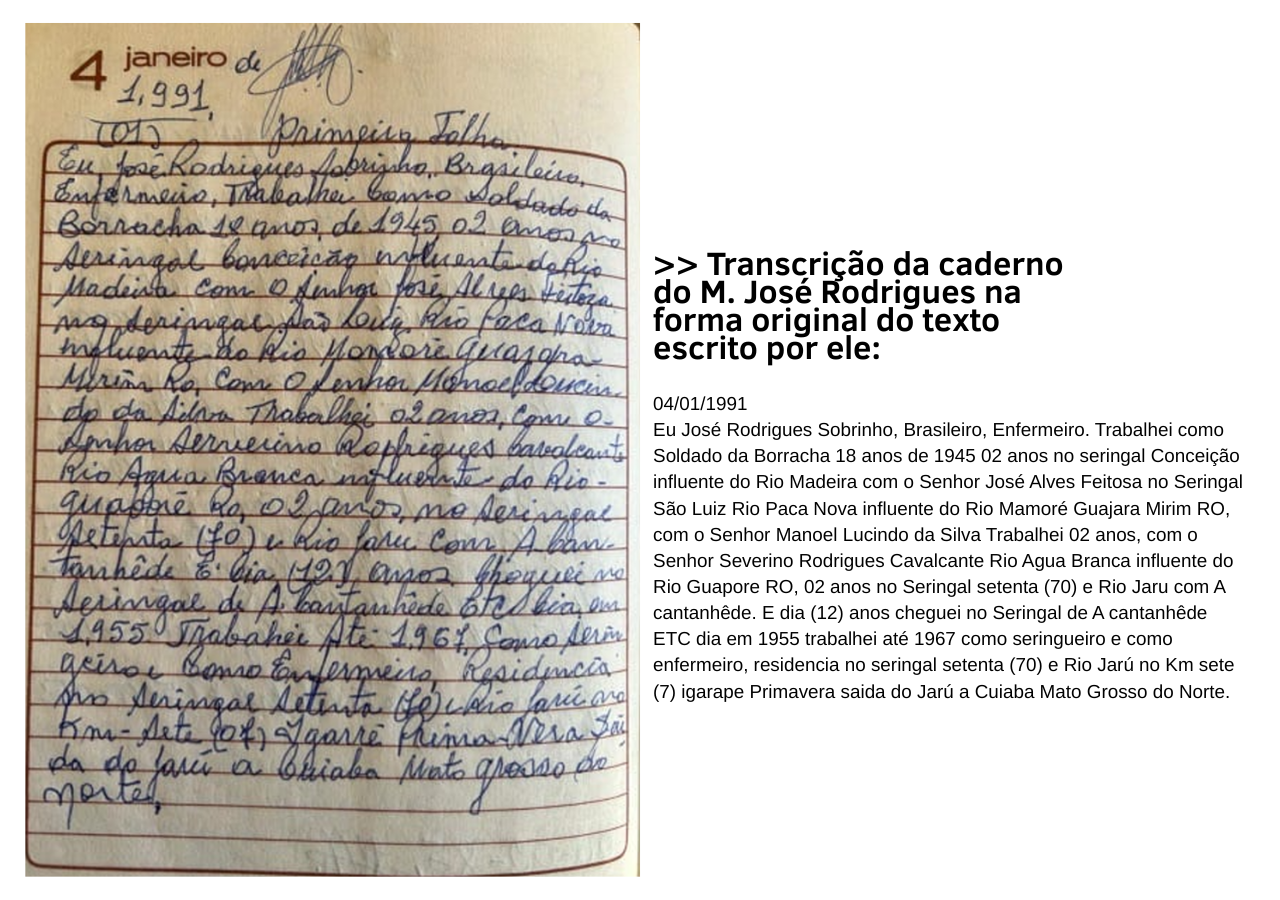 4 janeiro de
1,991,
(01) Primeira Folha.
Eu José Rodrigues Sobrinho, Brasileiro,
Enfermeiro, Trabalhei Como Soldado da
Borracha 18 anos, de 1945, 02 anos no
Seringal Conceicão influente do Rio
Madeira com O Senhor José Alves Feitoza
no Seringal São Luiz Rio Paca Nova
influente do Rio Mamoré Guajara-
Mirim Ro, Com O Senhor Manoel Loucin-
do da Silva Trabalhei 02 anos, com o-
Senhor Serverino Rodrigues Cavalcante
Rio Agua Branca influente do Rio-
guaporé Ro, 02 anos, no Seringal
Setenta (70) e Rio Jaru com A. Can-
tanhêde E. Cia (12), anos, Choguei no
Seringal de A. Cantanhêde Etc Cia, em
1,955 Trabahei Até 1,967, Como Serin
geiro e Como Enfermeiro, Residencia
no Seringal Setenta (70) e Rio Jarú no
Km- Sete (07) Ygarré Prima-Vera Sai
da do Jarú a Cuiaba Mato grosso do
norte,
>> Transcrição da caderno
do M. José Rodrigues na
forma original do texto
escrito por ele:
04/01/1991
Eu José Rodrigues Sobrinho, Brasileiro, Enfermeiro. Trabalhei como
Soldado da Borracha 18 anos de 1945 02 anos no seringal Conceição
influente do Rio Madeira com o Senhor José Alves Feitosa no Seringal
São Luiz Rio Paca Nova influente do Rio Mamoré Guajara Mirim RO,
com o Senhor Manoel Lucindo da Silva Trabalhei 02 anos, com o
Senhor Severino Rodrigues Cavalcante Rio Agua Branca influente do
Rio Guapore RO, 02 anos no Seringal setenta (70) e Rio Jaru com A
cantanhêde. E dia (12) anos cheguei no Seringal de A cantanhêde
ETC dia em 1955 trabalhei até 1967 como seringueiro e como
enfermeiro, residencia no seringal setenta (70) e Rio Jarú no Km sete
(7) igarape Primavera saida do Jarú a Cuiaba Mato Grosso do Norte.